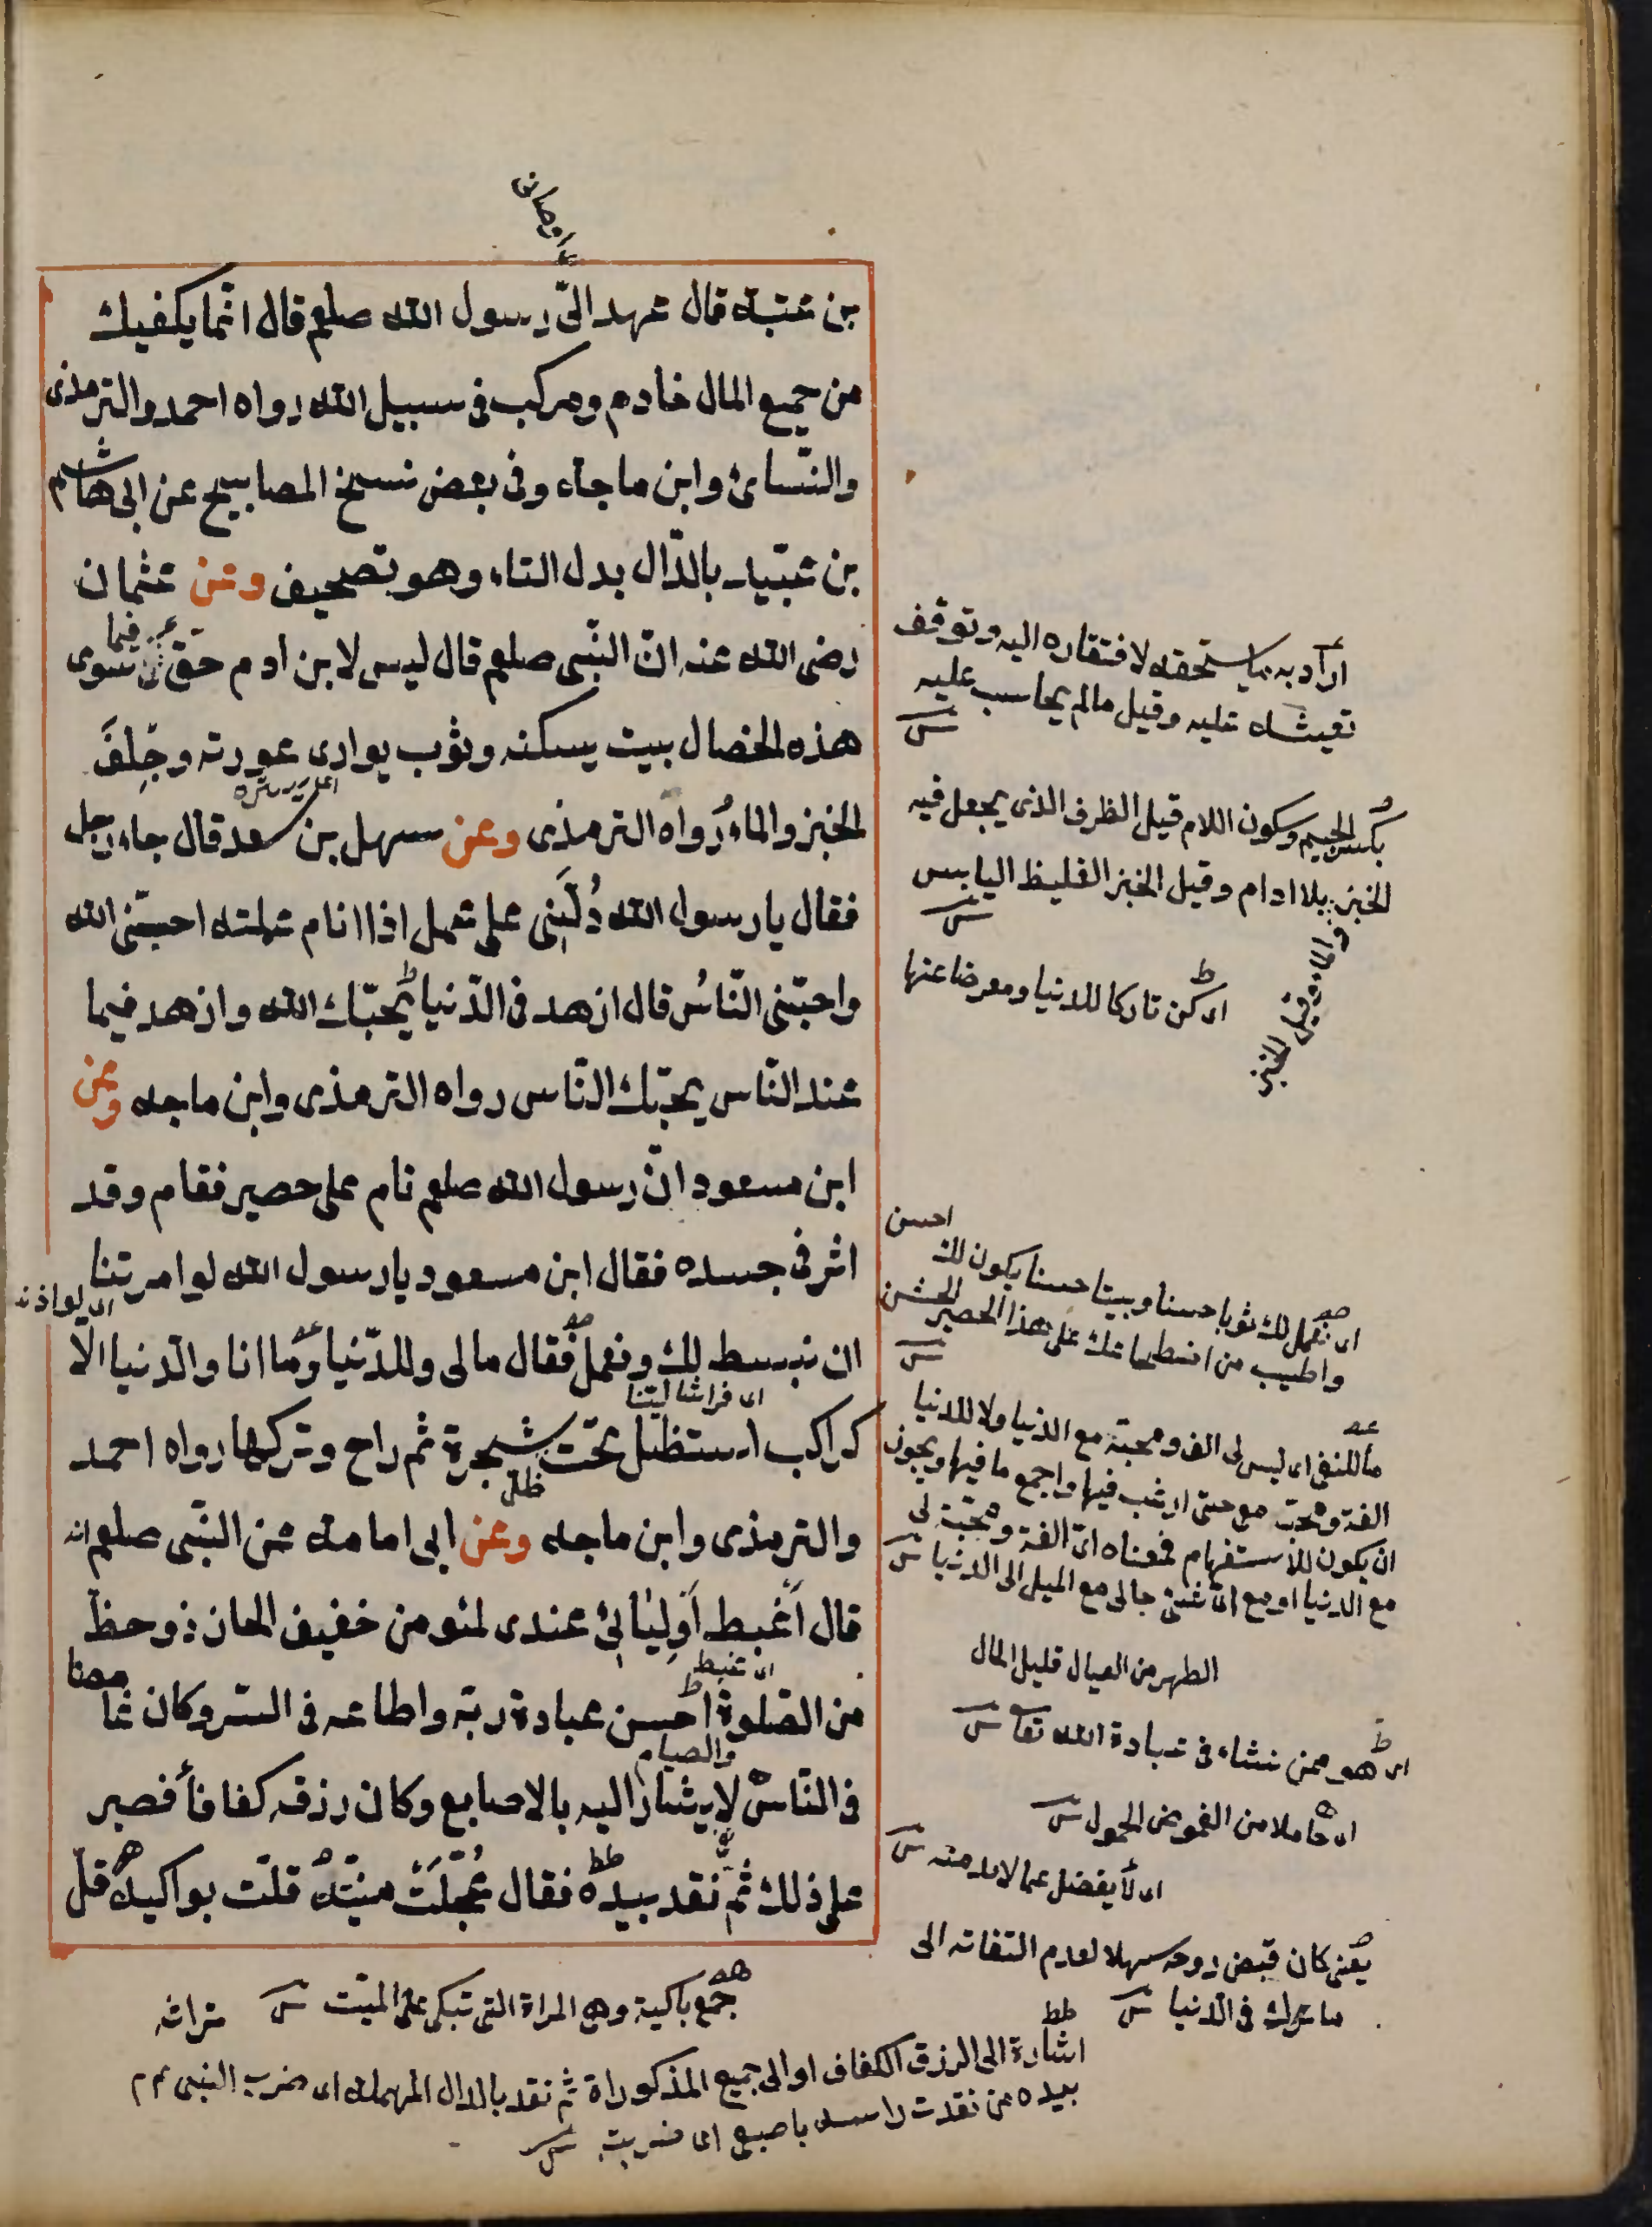 بن عتبة قال عهد الىّ رسول الله صلعم قال انّما يكفيك
من جميع المال خادم ومركب فى سبيل الله رواه احمد والترمذى
والنّسائ وابن ماجة وفى بعض نسخ المصابيح عن ابى هاشم
بن عتبيد بالدّال بدل التاء وهو تصحيف وعن عثمان
رضى الله عنه انّ النّبى صلعم قال ليس لابن ادم حقّ سوى
فيما
هذه الخصال بيت يسكنه وثوب يوارى عورته وجِلفَ
الخبز والماء رواه الترمذى وعن سهل بن سعد قال جاء رجل
فقال يا رسول الله دُلّنِى على عمل اذا انا م عملته احبّنى الله
واحبّنى النّاسُ قال ازهد فى الدّنيا يُحبّك الله وازهد فيما
عند النّاس يحبّك النّاس رواه الترمذى وابن ماجه وعن
ابن مسعود انّ رسول الله صلعم نام على حصير فقام وقد
اثر فى جسده فقال ابن مسعود يا رسول الله لو امرتنا
ان نبسط لك ونعمل فقال مالى وللدّنيا وما انا والدّنيا الّا
كراكب استظل تحت شجرة ثم راح وتركها رواه احمد
ظلّ
والترمذى وابن ماجه وعن ابى امامة عن النّبى صلعم انه
قال أغبط أوليائى عندى لمئومن خفيف الحاذ ذو حظّ
من الصّلوة احسن عبادة ربّه واطاعه فى السّر وكان غامضا
والصيام
فى النّاس لا يشار اليه بالاصابع وكان رزقه كفافا فصبر
على ذلك ثمّ نقد بيده فقال عُجّلَتْ منيّته قلّت بواكيه قلّ
اراد به ما يستحقه لافتقاره اليه وتوقف
تعيشه عليه وقيل مالم يحاسب عليه
بكسر الجيم وسكون اللام قيل الظرف الذى يجعل فيه
الخبز بلا ادام وقيل الخبز الغليظ اليابس
اى كن تاركا للدنيا ومعرضا عنها
احسن
اى نعمل لك ثوبا حسنا وبيتا حسنا يكون لك
واطيب من اضطجاعك على هذا الحصير الخشن
ما للنفى اى ليس لى الف ومحبة مع الدنيا ولا للدنيا
الفة ومحبة مع حتى ارغب فيها واجمع ما فيها ويجوز
ان يكون للاستفهام فمعناه اىّ الفة ومحبّة لى
مع الدنيا او مع اىّ شئ حالى مع الميل الى الدنيا
الظهر من العيال قليل المال
اى هو ممن نشاء فى عبادة الله تعا
اى خاملا من الغموض الخمول
اى لا يفضل عما لا بد منه
يعنى كان قبض روحه سهلا لعدم التفاته الى
ما ترك فى الدنيا
جمع باكية وهى المراة التى تبكى على الميّت
تراثه
اشارة الى الرزق الكفاف او الى جميع المذكوراة ثم نقد بالدال المهملة اى ضرب النبى عم
بيده من نقدت راسه باصبعى اى ضربت